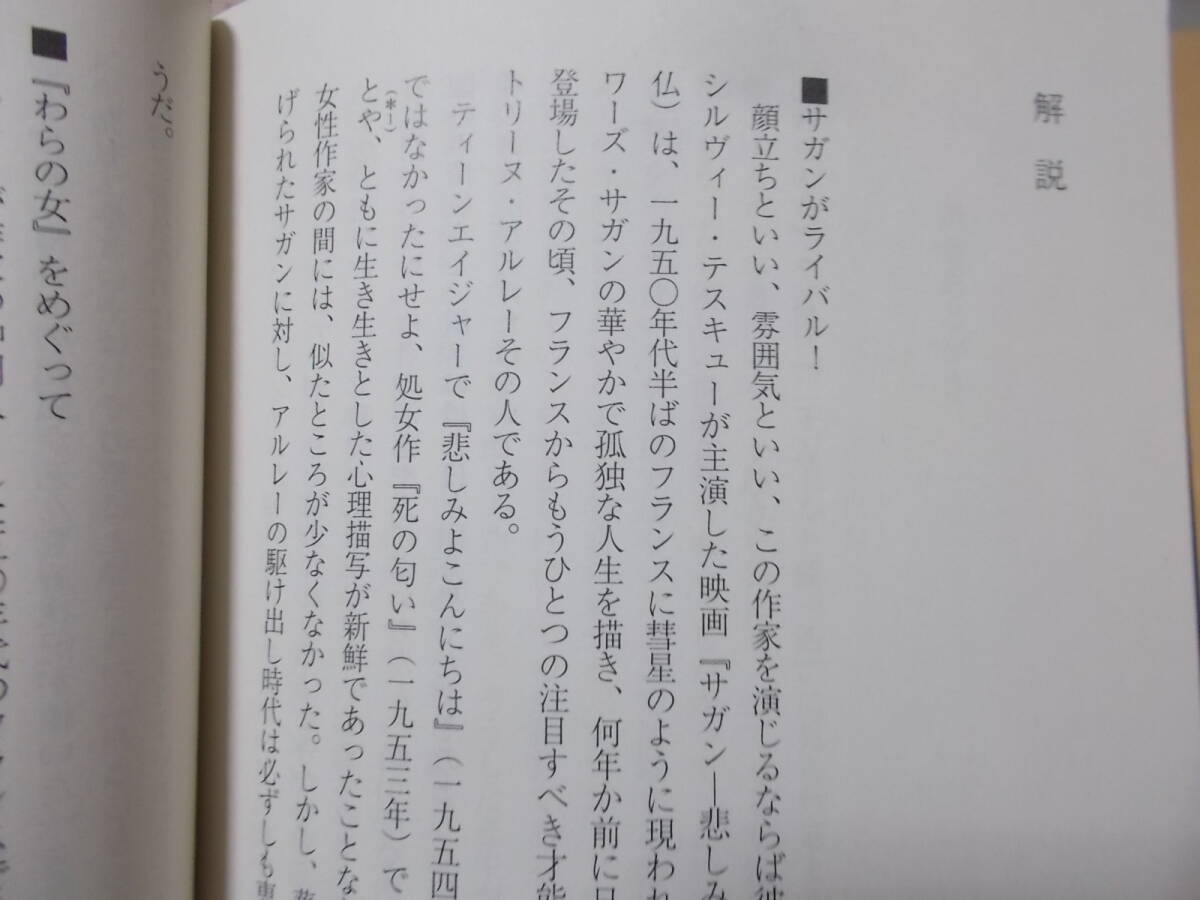 解説
■サガンがライバル！
顔立ちといい、雰囲気といい、この作家を演じるならば
シルヴィー・テスキューが主演した映画『サガン―悲しみ
仏）は、一九五〇年代半ばのフランスに彗星のように現われ
ワーズ・サガンの華やかで孤独な人生を描き、何年か前に
登場したその頃、フランスからもうひとつの注目すべき才能
トリーヌ・アルレーその人である。
ティーンエイジャーで『悲しみよこんにちは』（一九五四
ではなかったにせよ、処女作『死の匂い』（一九五三年）で
(*1)
とや、ともに生き生きとした心理描写が新鮮であったことな
女性作家の間には、似たところが少なくなかった。しかし、
げられたサガンに対し、アルレーの駆け出し時代は必ずしも
うだ。
■『わらの女』をめぐって